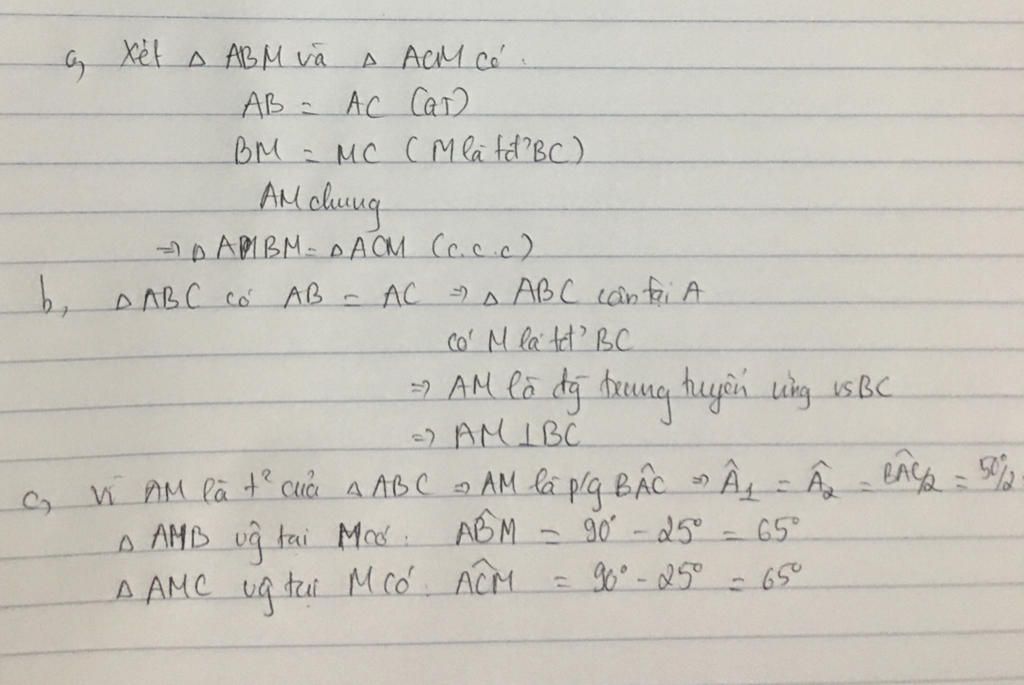 a, Xét △ ABM và △ ACM có:
AB = AC (GT)
BM = MC (M là tđ' BC)
AM chung
⇒ △ ABM = △ ACM (c.c.c)
b, △ ABC có AB = AC ⇒ △ ABC cân tại A
có M là tđ' BC
⇒ AM là đg trung tuyến ứng vs BC
⇒ AM ⊥ BC
c, Vì AM là t² của △ ABC ⇒ AM là p/g BÂC ⇒ Â₁ = Â₂ = BÂC/2 = 50°/2
△ AMB vg tại M có: AB̂M = 90° - 25° = 65°
△ AMC vg tại M có: AĈM = 90° - 25° = 65°